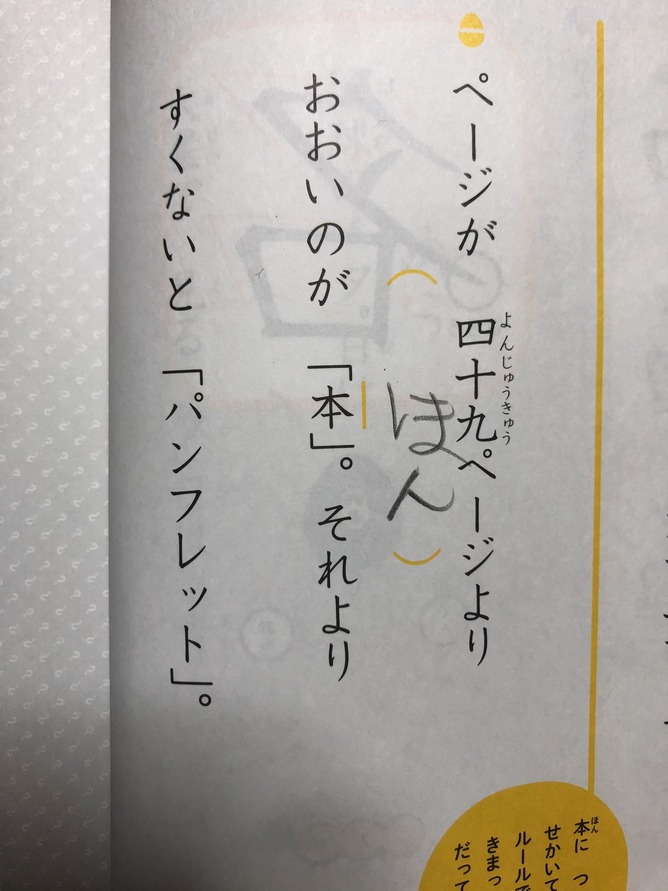 ページが 四十九ページより
よんじゅうきゅう
（ほん）
おおいのが 「本」。それより
すくないと 「パンフレット」。
本に つ
ほん
せかいで
ルールで
きまっ
だって